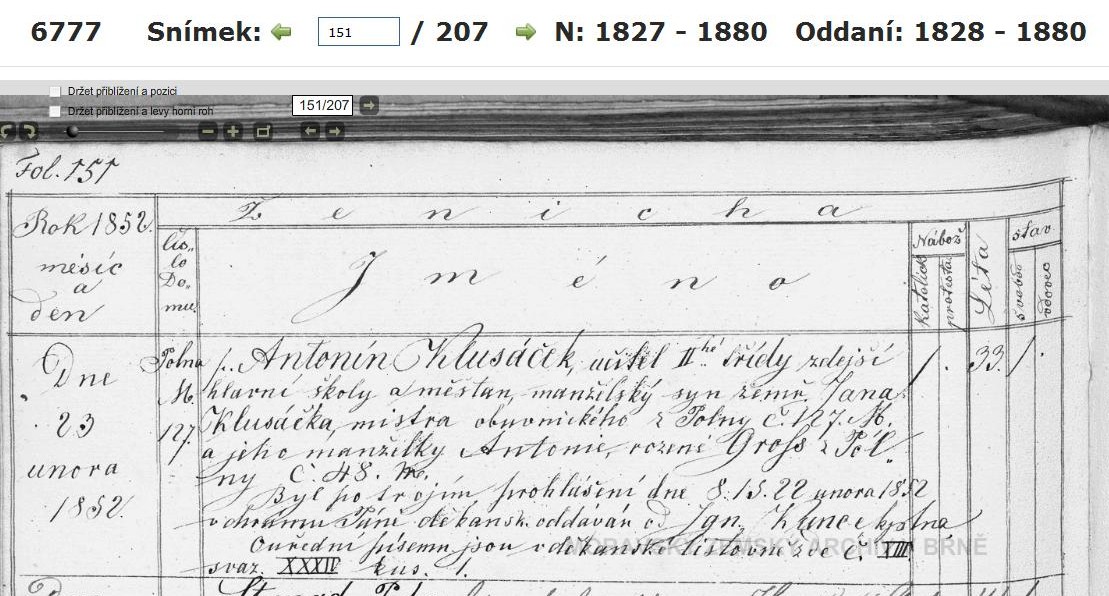 6777 Snímek: 151 / 207 N: 1827 - 1880 Oddaní: 1828 - 1880
Držet přiblížení a pozici
Držet přiblížení a levy horni roh
151/207
Fol. 151
Rok 1852.
měsíc
a
den
Ženicha
Čís,,
lo
Do,,
mu.
Jméno
Nábož
katolick
protesta
Léta
stav
svobod
vdovec
Dne
23
unora
1852.
Polna
M.
127.
Antonín Klusáček, učitel II hé třídy zdejší
hlavní školy a měštan, manželský syn zemř. Jana
Klusáčka, mistra obuvnického z Polny č. 127. M.
a jeho manželky Antonie, rozené Gross z Pol,,
ny č. 48. M.
Byl po trojím prohlášení dne 8. 15. 22 unora 1852
v chrámu Páně děkansk. oddáván od Ign. Kunce kaplna
Ouřední písemn. jsou v děkanské listovně č. VIII
svaz. XXXIV kus. 1.
1.
33.
1.
MORAVSKÝ ZEMSKÝ ARCHIV V BRNĚ